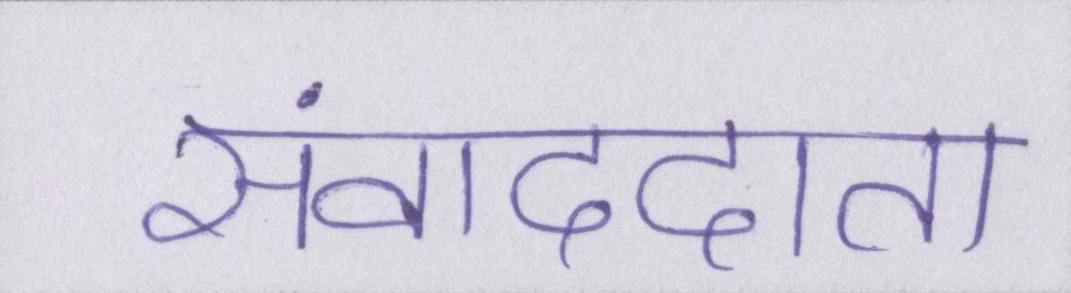 संवाददाता